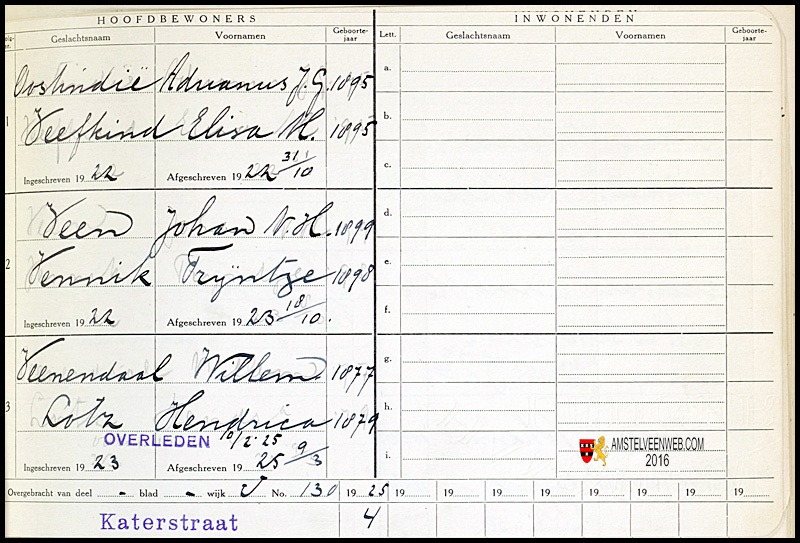 HOOFDBEWONERS
INWONENDEN
Geslachtsnaam Voornamen Geboorte-jaar Lett. Geslachtsnaam Voornamen Geboorte-jaar
Oostindië Adrianus J.G. 1895 a.
1 Veefkind Elisa M. 1895 b.
c.
Ingeschreven 19 22 Afgeschreven 19 22 31/10
Veen Johan N.H. 1899 d.
2 Vennik Trijntje 1898 e.
f.
Ingeschreven 19 22 Afgeschreven 19 23 18/10.
Veenendaal Willem. 1877 g.
3 Lotz Hendrica 1879 h.
OVERLEDEN 10/2-25
Ingeschreven 19 23 Afgeschreven 19 25 9/3 i.
AMSTELVEENWEB.COM
2016
Overgebracht van deel - blad - wijk V No. 130 19 25 19 19 19 19 19 19 19 19
Katerstraat 4